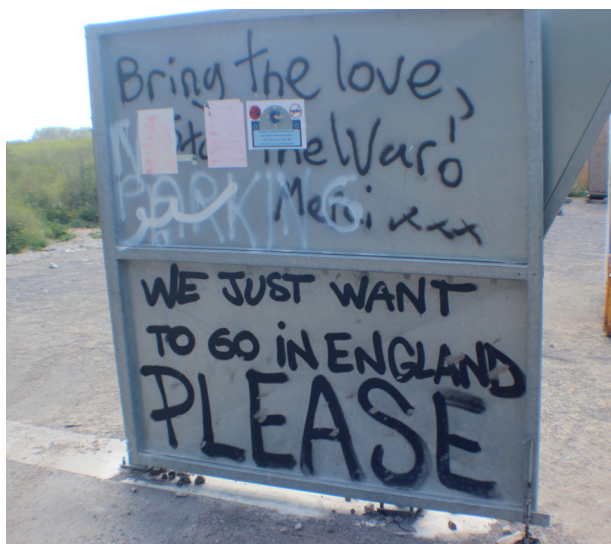 Bring the love,
the War!
PARKING
Merci xxx
WE JUST WANT
TO GO iN ENGLAND
PLEASE